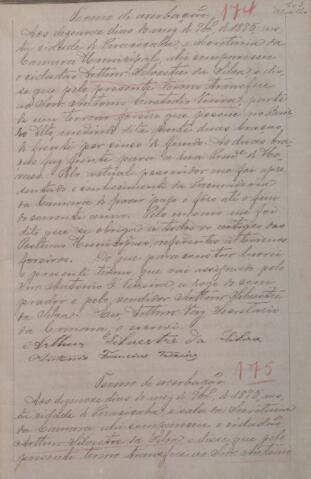 Termo de averbação 174
Aos dezenove dias do mez de 9bro de 1895, nes
ta cidade de Piracicaba, e Secretaria da
Camara Municipal, ahi compareceu
o cidadão Arthur Silvestre da Silva, e dis
se que pelo presente termo transfere
ao Snr. Antonio Custodio Vieira, parte
de um terreno foreiro que possue no Bair
ro Alto, medindo dita parte duas braças
de frente por cinco de fundo. As duas bra
ças faz frente para a rua
Pelo actual possuidor me foi apre
sentado o conhecimento da Procuradoria
da Camara de haver pago o fôro até o fim
do corrente anno. Pelo mesmo me foi
dito que se obriga a todos os artigos das
Posturas Municipaes, referentes a terrenos
foreiros. Do que para constar lavrei
o presente termo, que vai assignado pelo
Snr. Antonio F. Teixeira, a rogo do com
prador e pelo vendedor Arthur Silvestre
da Silva. Eu, Arthur Vaz, Secretario
da Camara, o escrevi.
Arthur Silvestre da Silva
Antonio Francisco Teixeira
175
Termo de averbação
Aos dezenove dias do mez de 9bro de 1895, nes
ta cidade de Piracicaba, e sala da Secretaria
da Camara ahi compareceu o cidadão
Arthur Silvestre da Silva, e disse que pelo
presente termo transfere ao Snr. Antonio